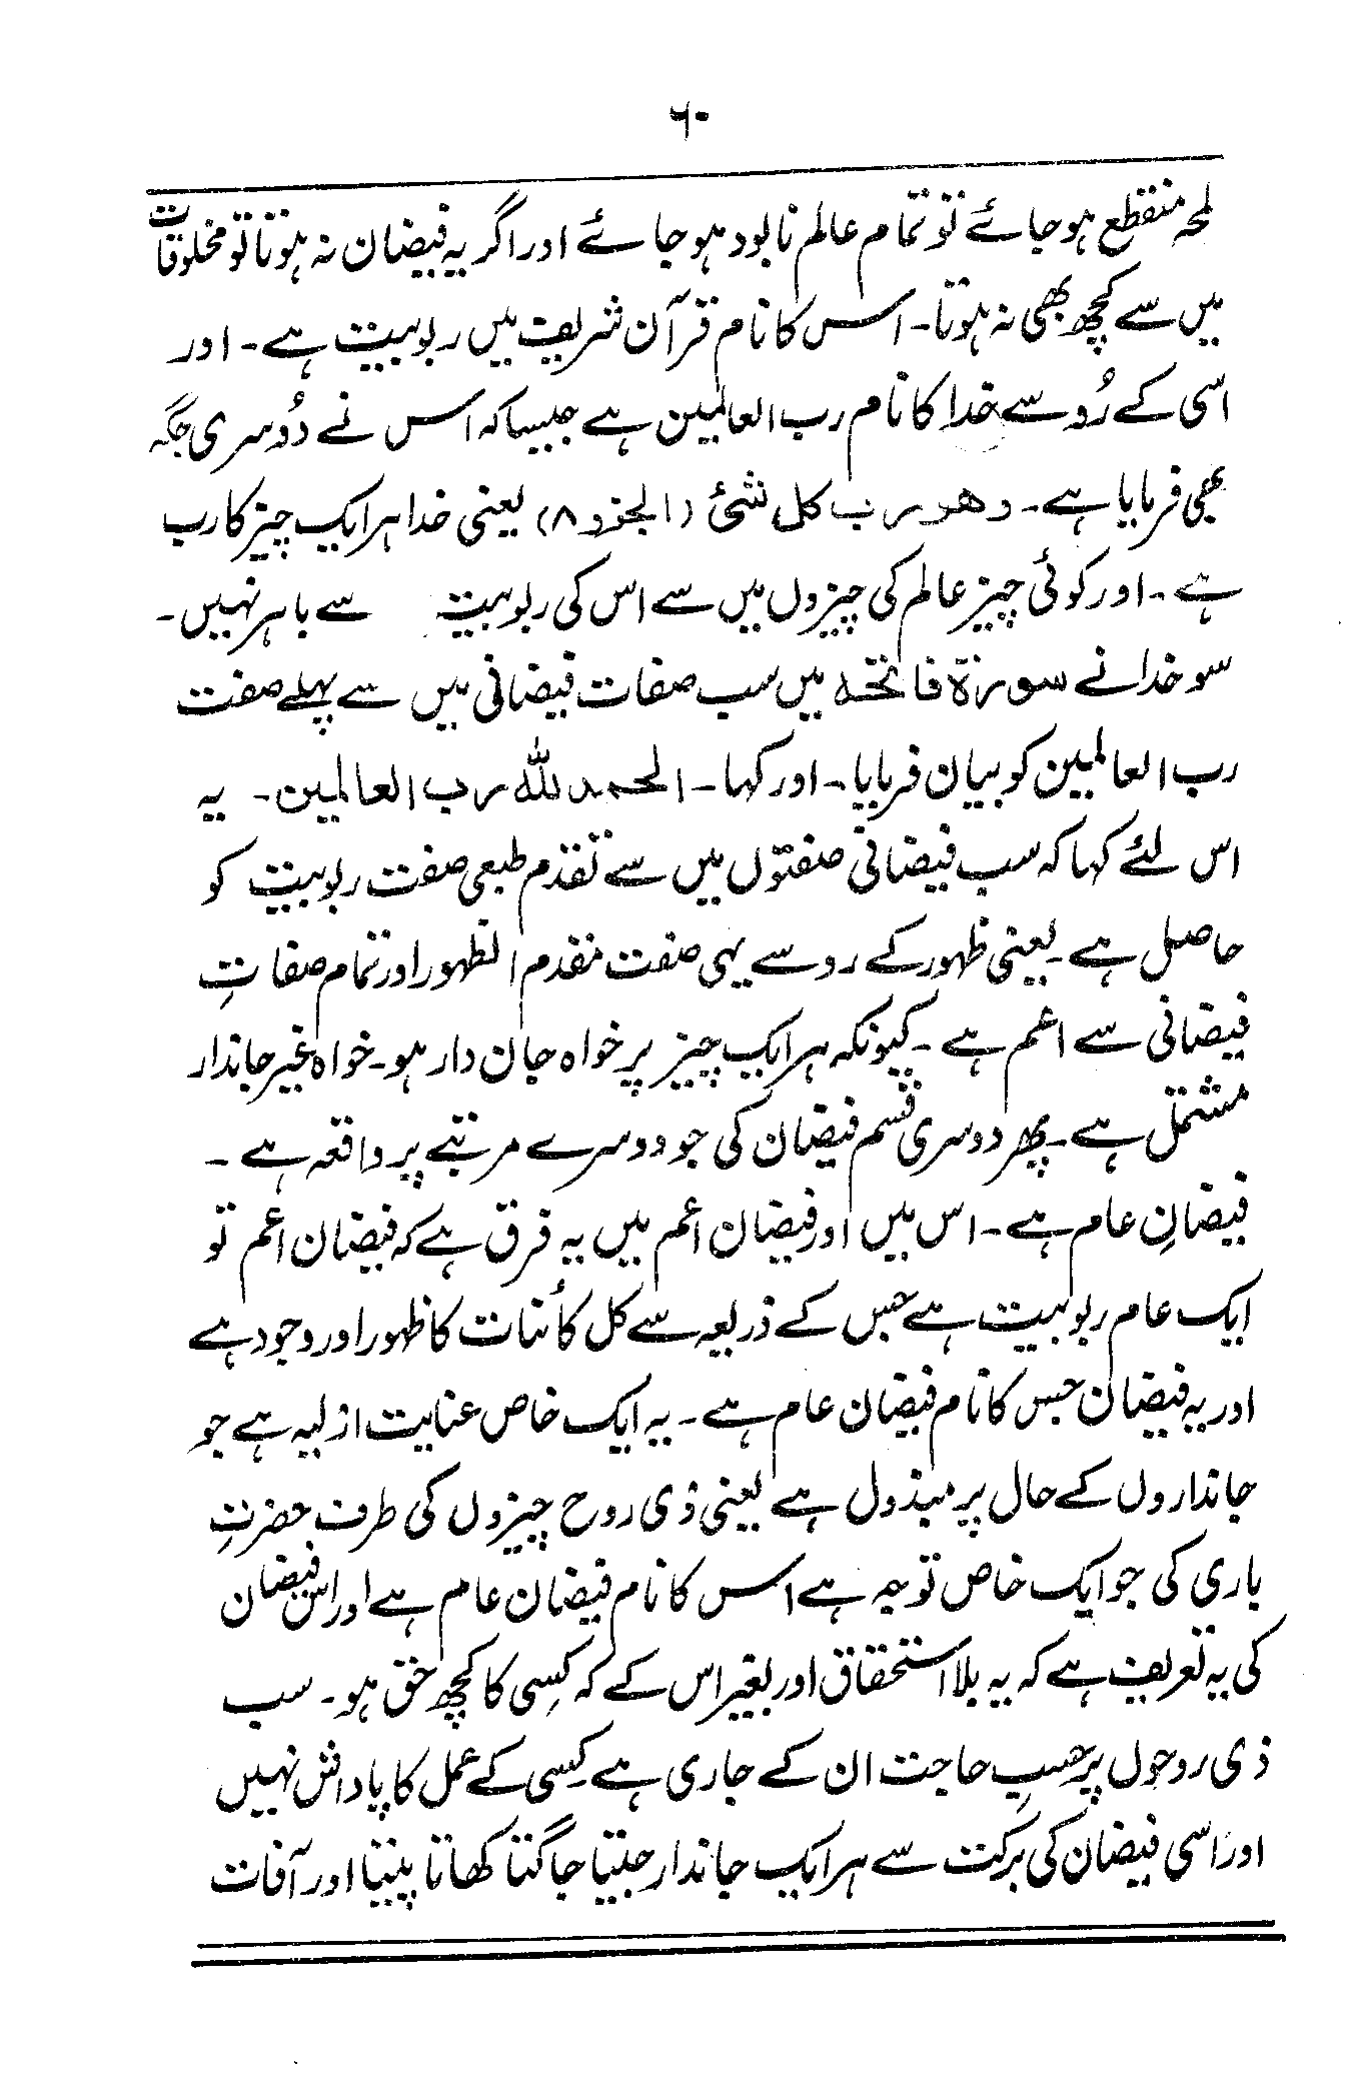 ۶۰
لمحہ منقطع ہو جائے تو تمام عالم نابود ہو جائے اور اگر یہ فیضان نہ ہوتا تو مخلوقات
میں سے کچھ بھی نہ ہوتا۔ اس کا نام قرآن شریف میں ربوبیت ہے۔ اور
اسی کے رُو سے خدا کا نام رب العالمین ہے جیسا کہ اس نے دُوسری جگہ
بھی فرمایا ہے۔ وھو رب کل شئ (الجزو ۸) یعنی خدا ہر ایک چیز کا رب
ہے۔ اور کوئی چیز عالم کی چیزوں میں سے اس کی ربوبیت سے باہر نہیں۔
سو خدا نے سورۃ فاتحہ میں سب صفات فیضانی میں سے پہلے صفت
رب العالمین کو بیان فرمایا۔ اور کہا۔ الحمد للہ رب العالمین۔ یہ
اس لئے کہا کہ سب فیضانی صفتوں میں سے تقدم طبعی صفت ربوبیت کو
حاصل ہے۔ یعنی ظہور کے رو سے یہی صفت مقدم الظہور اور تمام صفاتِ
فیضانی سے اعم ہے۔ کیونکہ ہر ایک چیز پر خواہ جان دار ہو۔ خواہ غیر جاندار
مشتمل ہے۔ پھر دوسری قسم فیضان کی جو دوسرے مرتبے پر واقعہ ہے۔
فیضانِ عام ہے۔ اس میں اور فیضان اعم میں یہ فرق ہے کہ فیضان اعم تو
ایک عام ربوبیت ہے جس کے ذریعہ سے کل کائنات کا ظہور اور وجود ہے
اور یہ فیضان جس کا نام فیضان عام ہے۔ یہ ایک خاص عنایت ازلیہ ہے جو
جانداروں کے حال پر مبذول ہے یعنی ذی روح چیزوں کی طرف حضرتِ
باری کی جو ایک خاص توجہ ہے اس کا نام فیضان عام ہے اور اس فیضان
کی یہ تعریف ہے کہ یہ بلا استحقاق اور بغیر اس کے کہ کِسی کا کچھ حق ہو۔ سب
ذی روحوں پر حسبِ حاجت ان کے جاری ہے۔ کِسی کے عمل کا پاداش نہیں
اور اسی فیضان کی برکت سے ہر ایک جاندار جیتا جاگتا کھاتا پیتا اور آفات